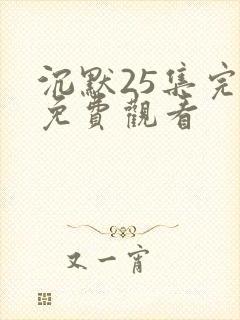 沉默25集完
免費觀看
又一宵